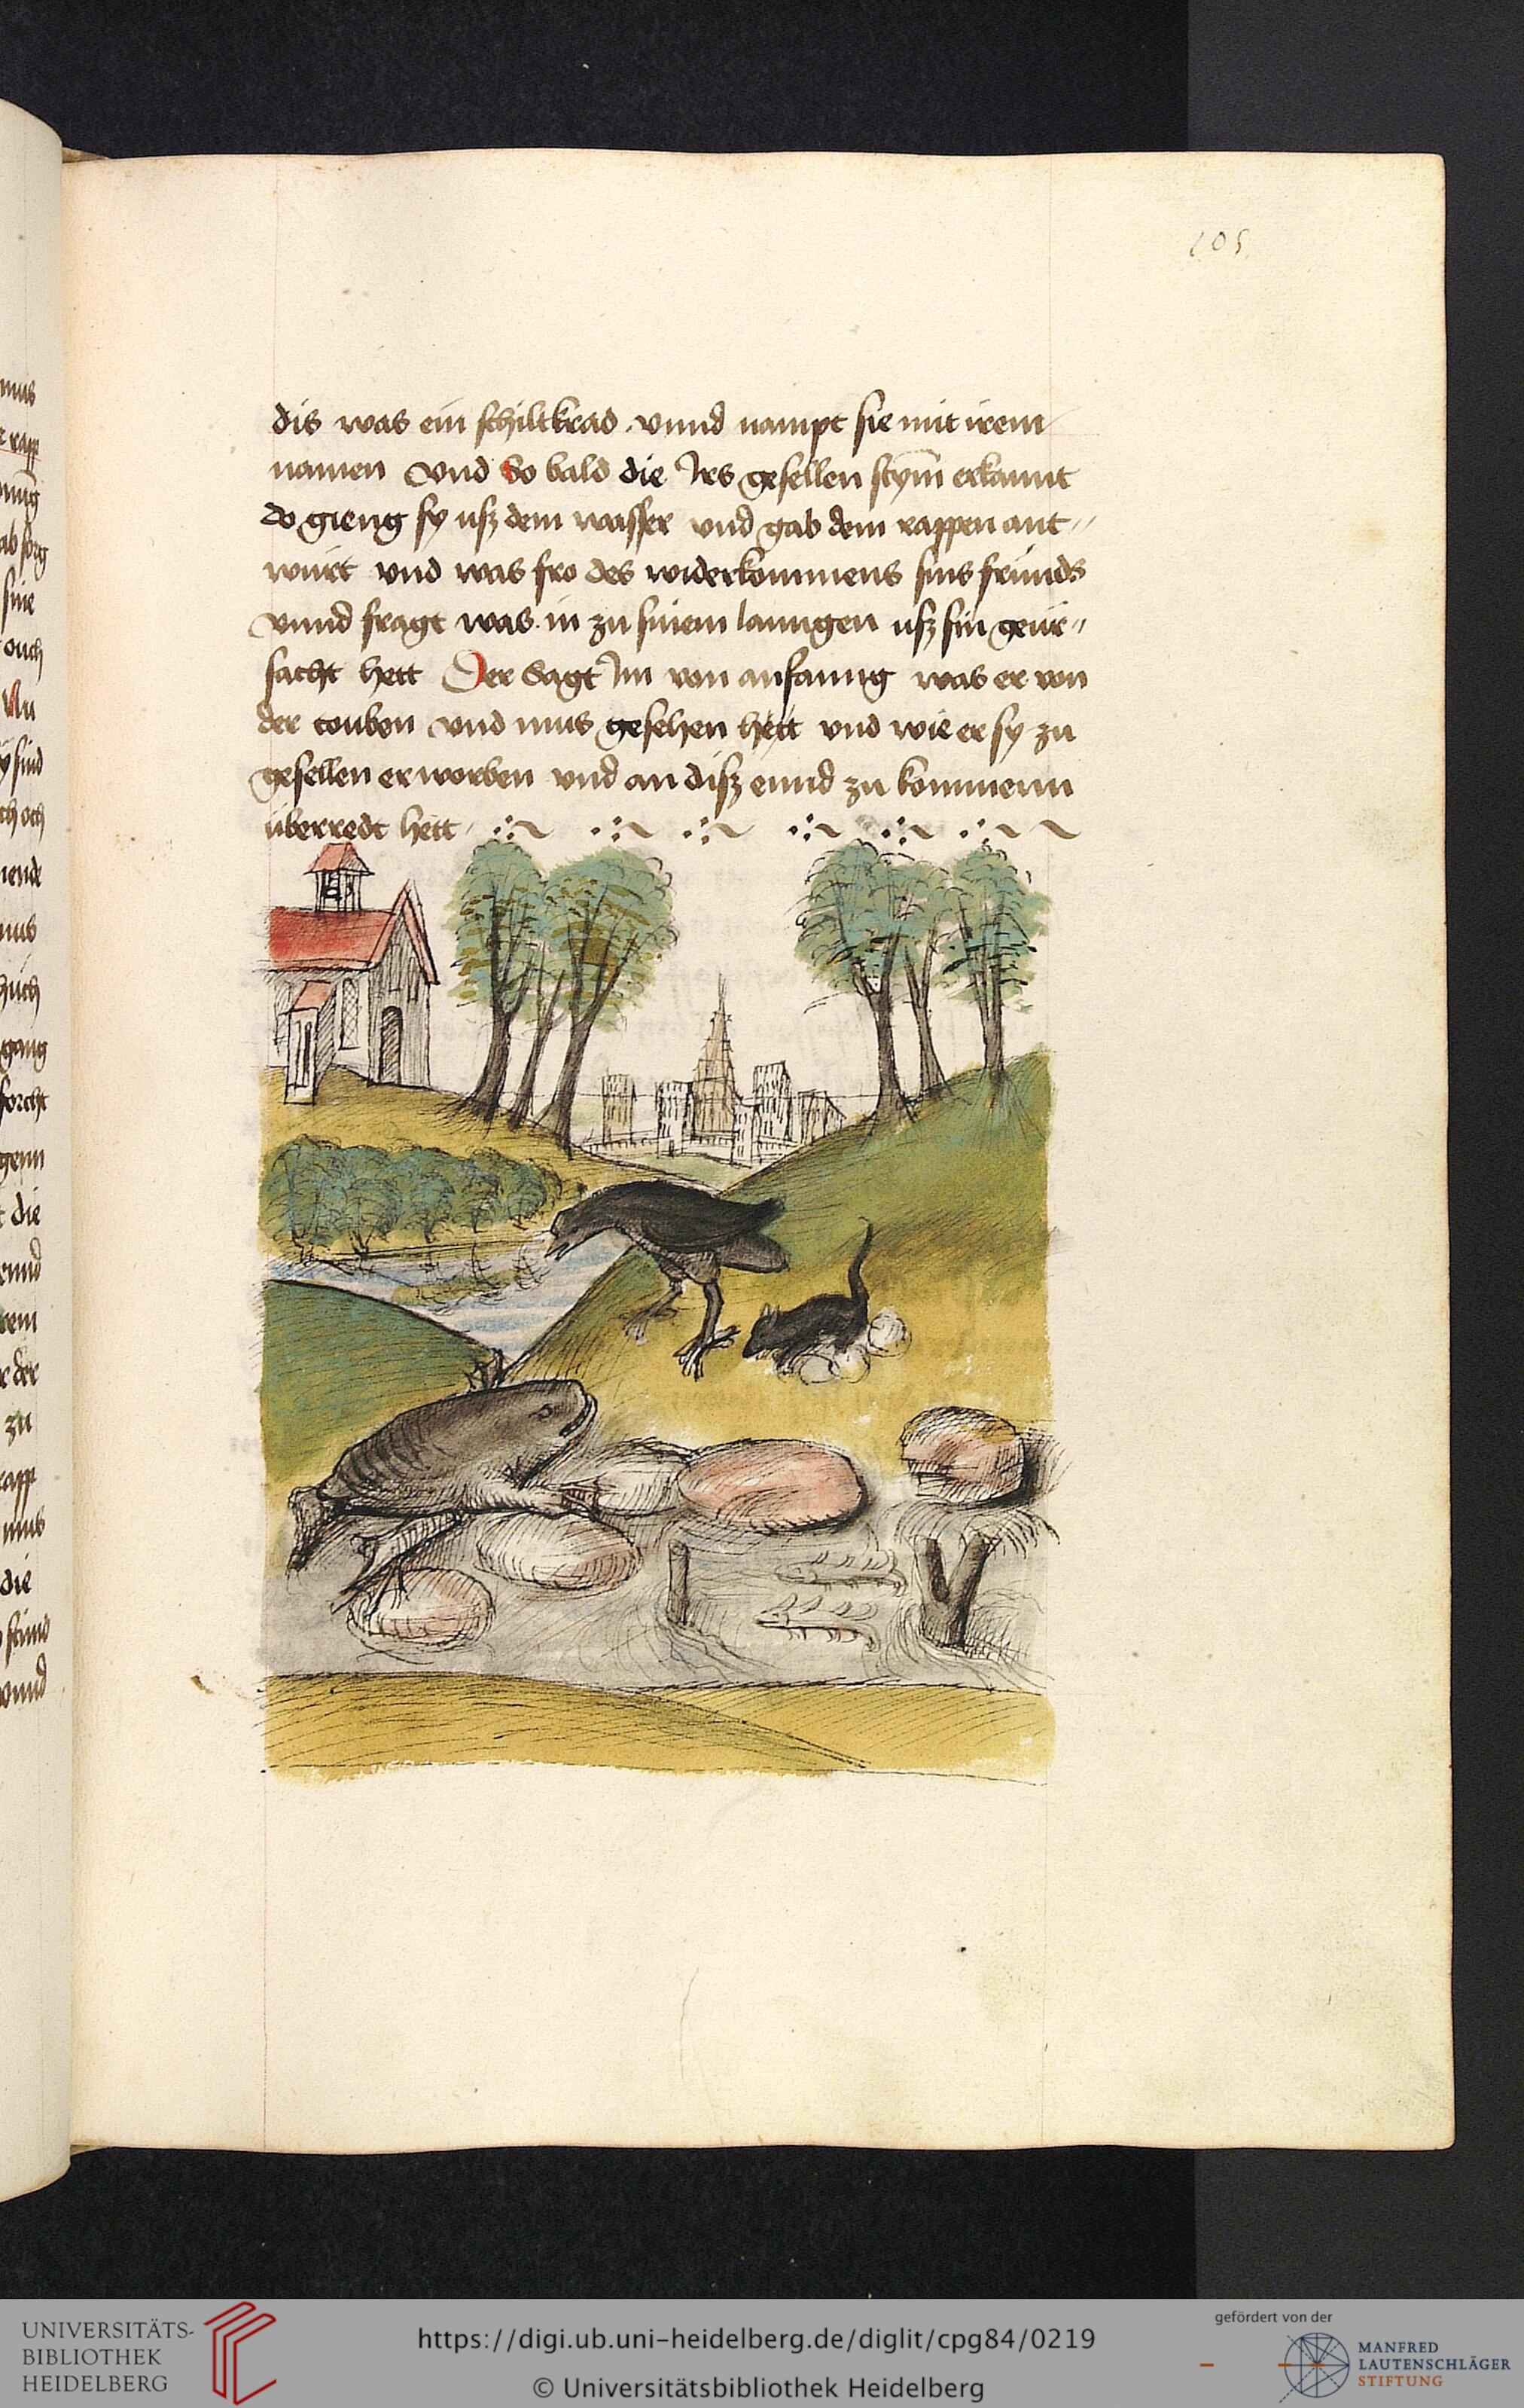 105
dis was ein schiltkrad . vnnd nampt sie mit irem
namen Vnd So bald die Irs gesellen stym̄ erkannt
do gieng sy usz dem wasser vnd gab dem rappen ant=
wurt vnd was fro des widerkommens sins frúnds
vnnd fragt was in zu sinem lanngen usz sin geúr=
sacht hett Der Sagt Im von anfanng was er von
der touben vnd mus gesehen hett vnd wie er sy zu
gesellen erworben vnd an disz ennd zu kommenn
úberredt hett
mus
rapp
ouch
sind
die
zu
rapp
mus
die
vnnd
UNIVERSITÄTS-
BIBLIOTHEK
HEIDELBERG
https://digi.ub.uni-heidelberg.de/diglit/cpg84/0219
© Universitätsbibliothek Heidelberg
gefördert von der
MANFRED
LAUTENSCHLÄGER
STIFTUNG